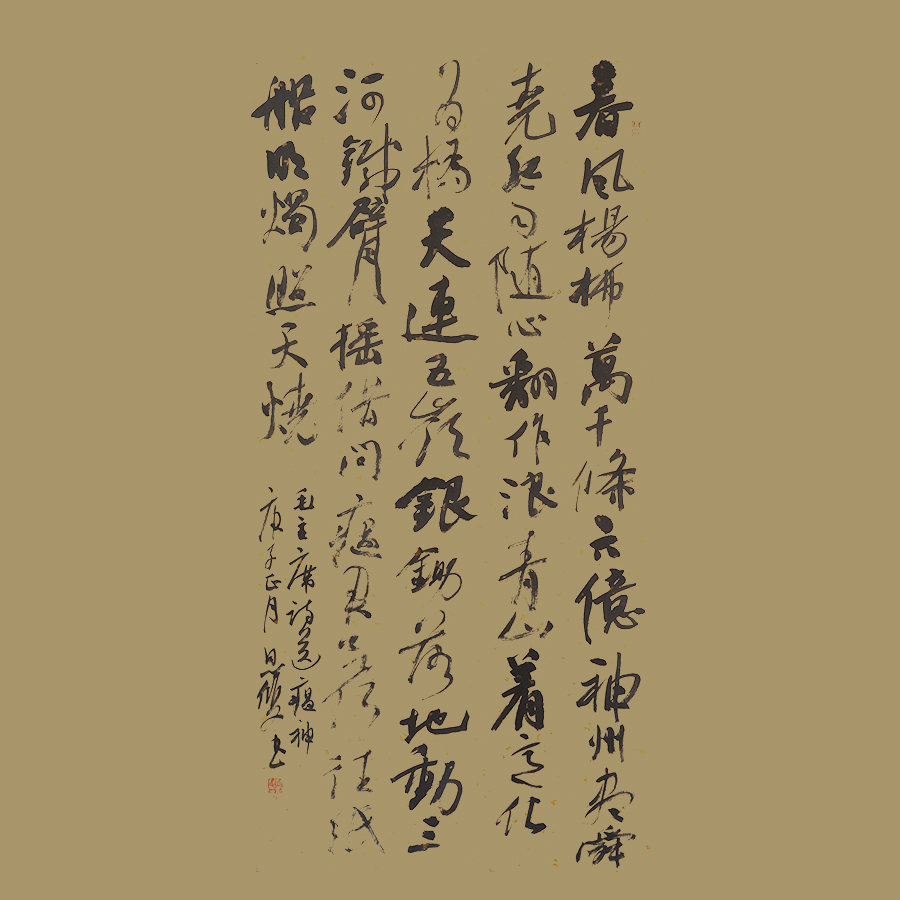 春風楊柳萬千條六億神州尽舜
堯紅雨随心翻作浪青山着意化
为橋天連五嶺銀鋤落地動三
河鐵臂摇借問瘟君欲何往紙
船明燭照天燒
毛主席詩送瘟神
庚子正月書